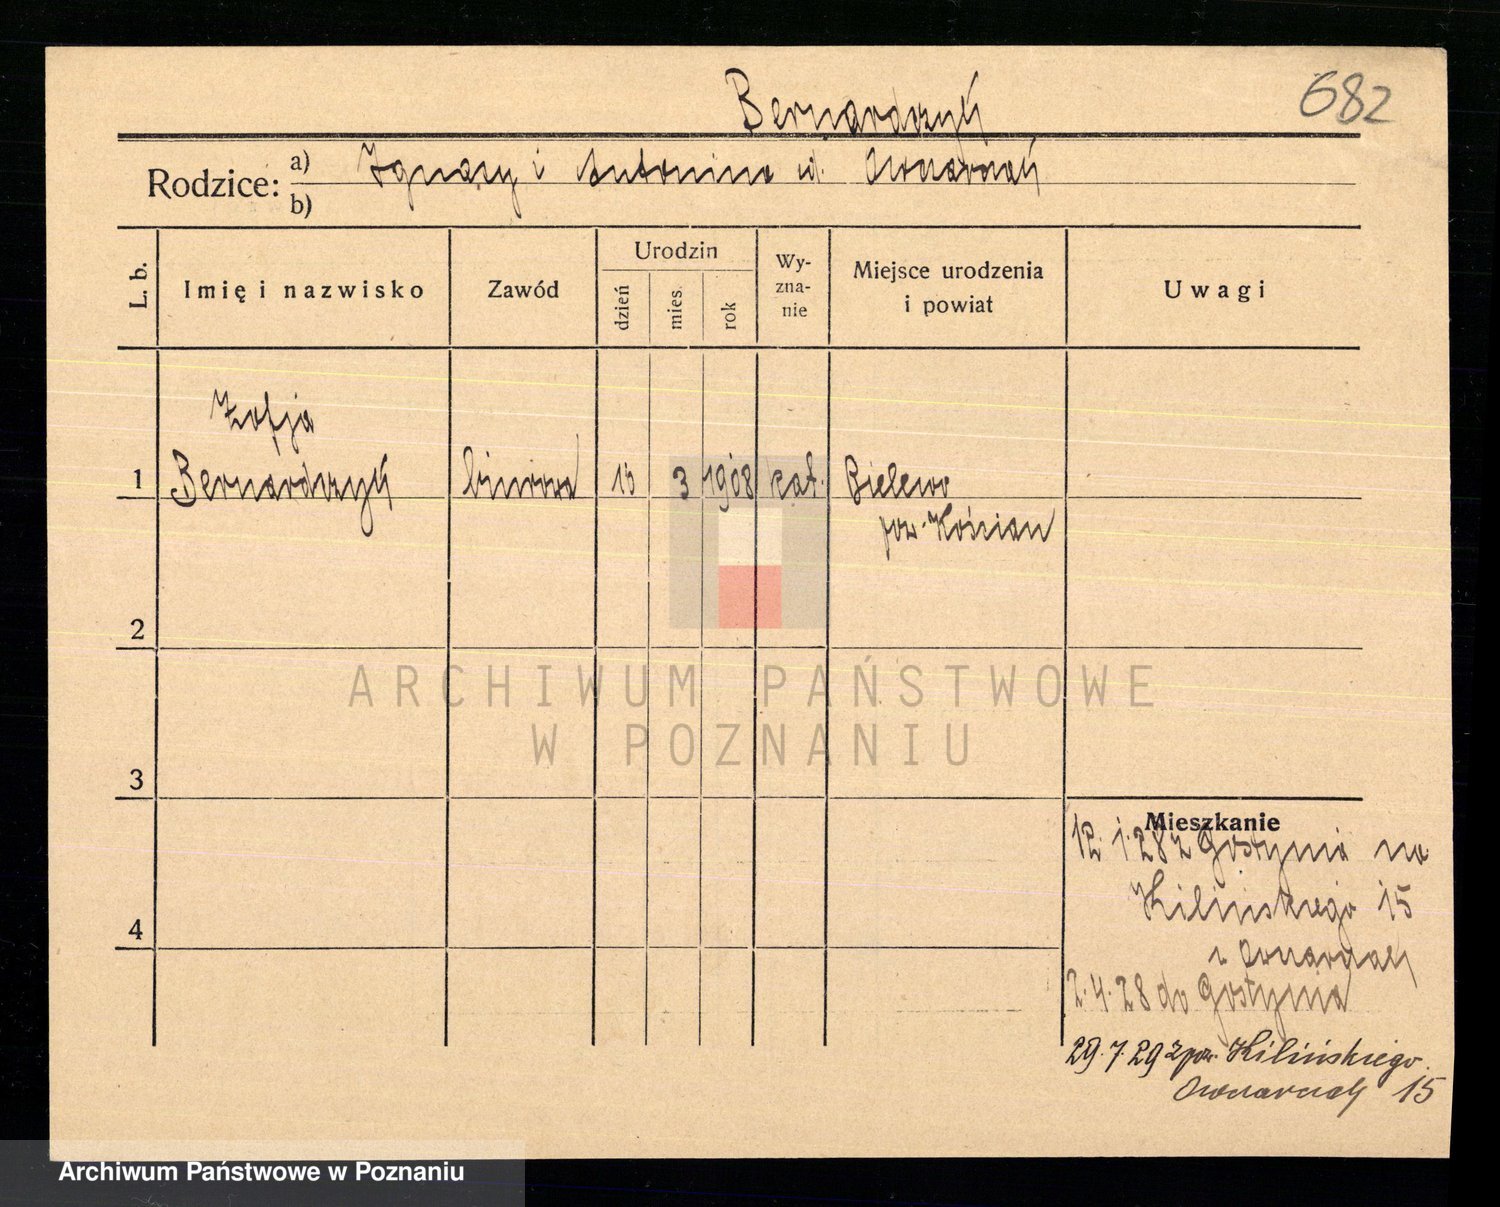 682
Bernardzyk
Rodzice: a) Ignacy i Antonina zd. Owczarczak
b)
L. b.
Imię i nazwisko
Zawód
Urodzin
dzień
mies.
rok
Wy-
zna-
nie
Miejsce urodzenia
i powiat
Uwagi
Zofja
1 Bernardzyk biurowa 15 3 1908 kat. Bielewo
pow. Kościan
2
3
4
Mieszkanie
12.1.28 z Gostynia na
Kilińskiego 15
2.4.28 do Gostynia
29.7.29 z pow. Kilińskiego
15
ARCHIWUM PAŃSTWOWE
W POZNANIU
Archiwum Państwowe w Poznaniu